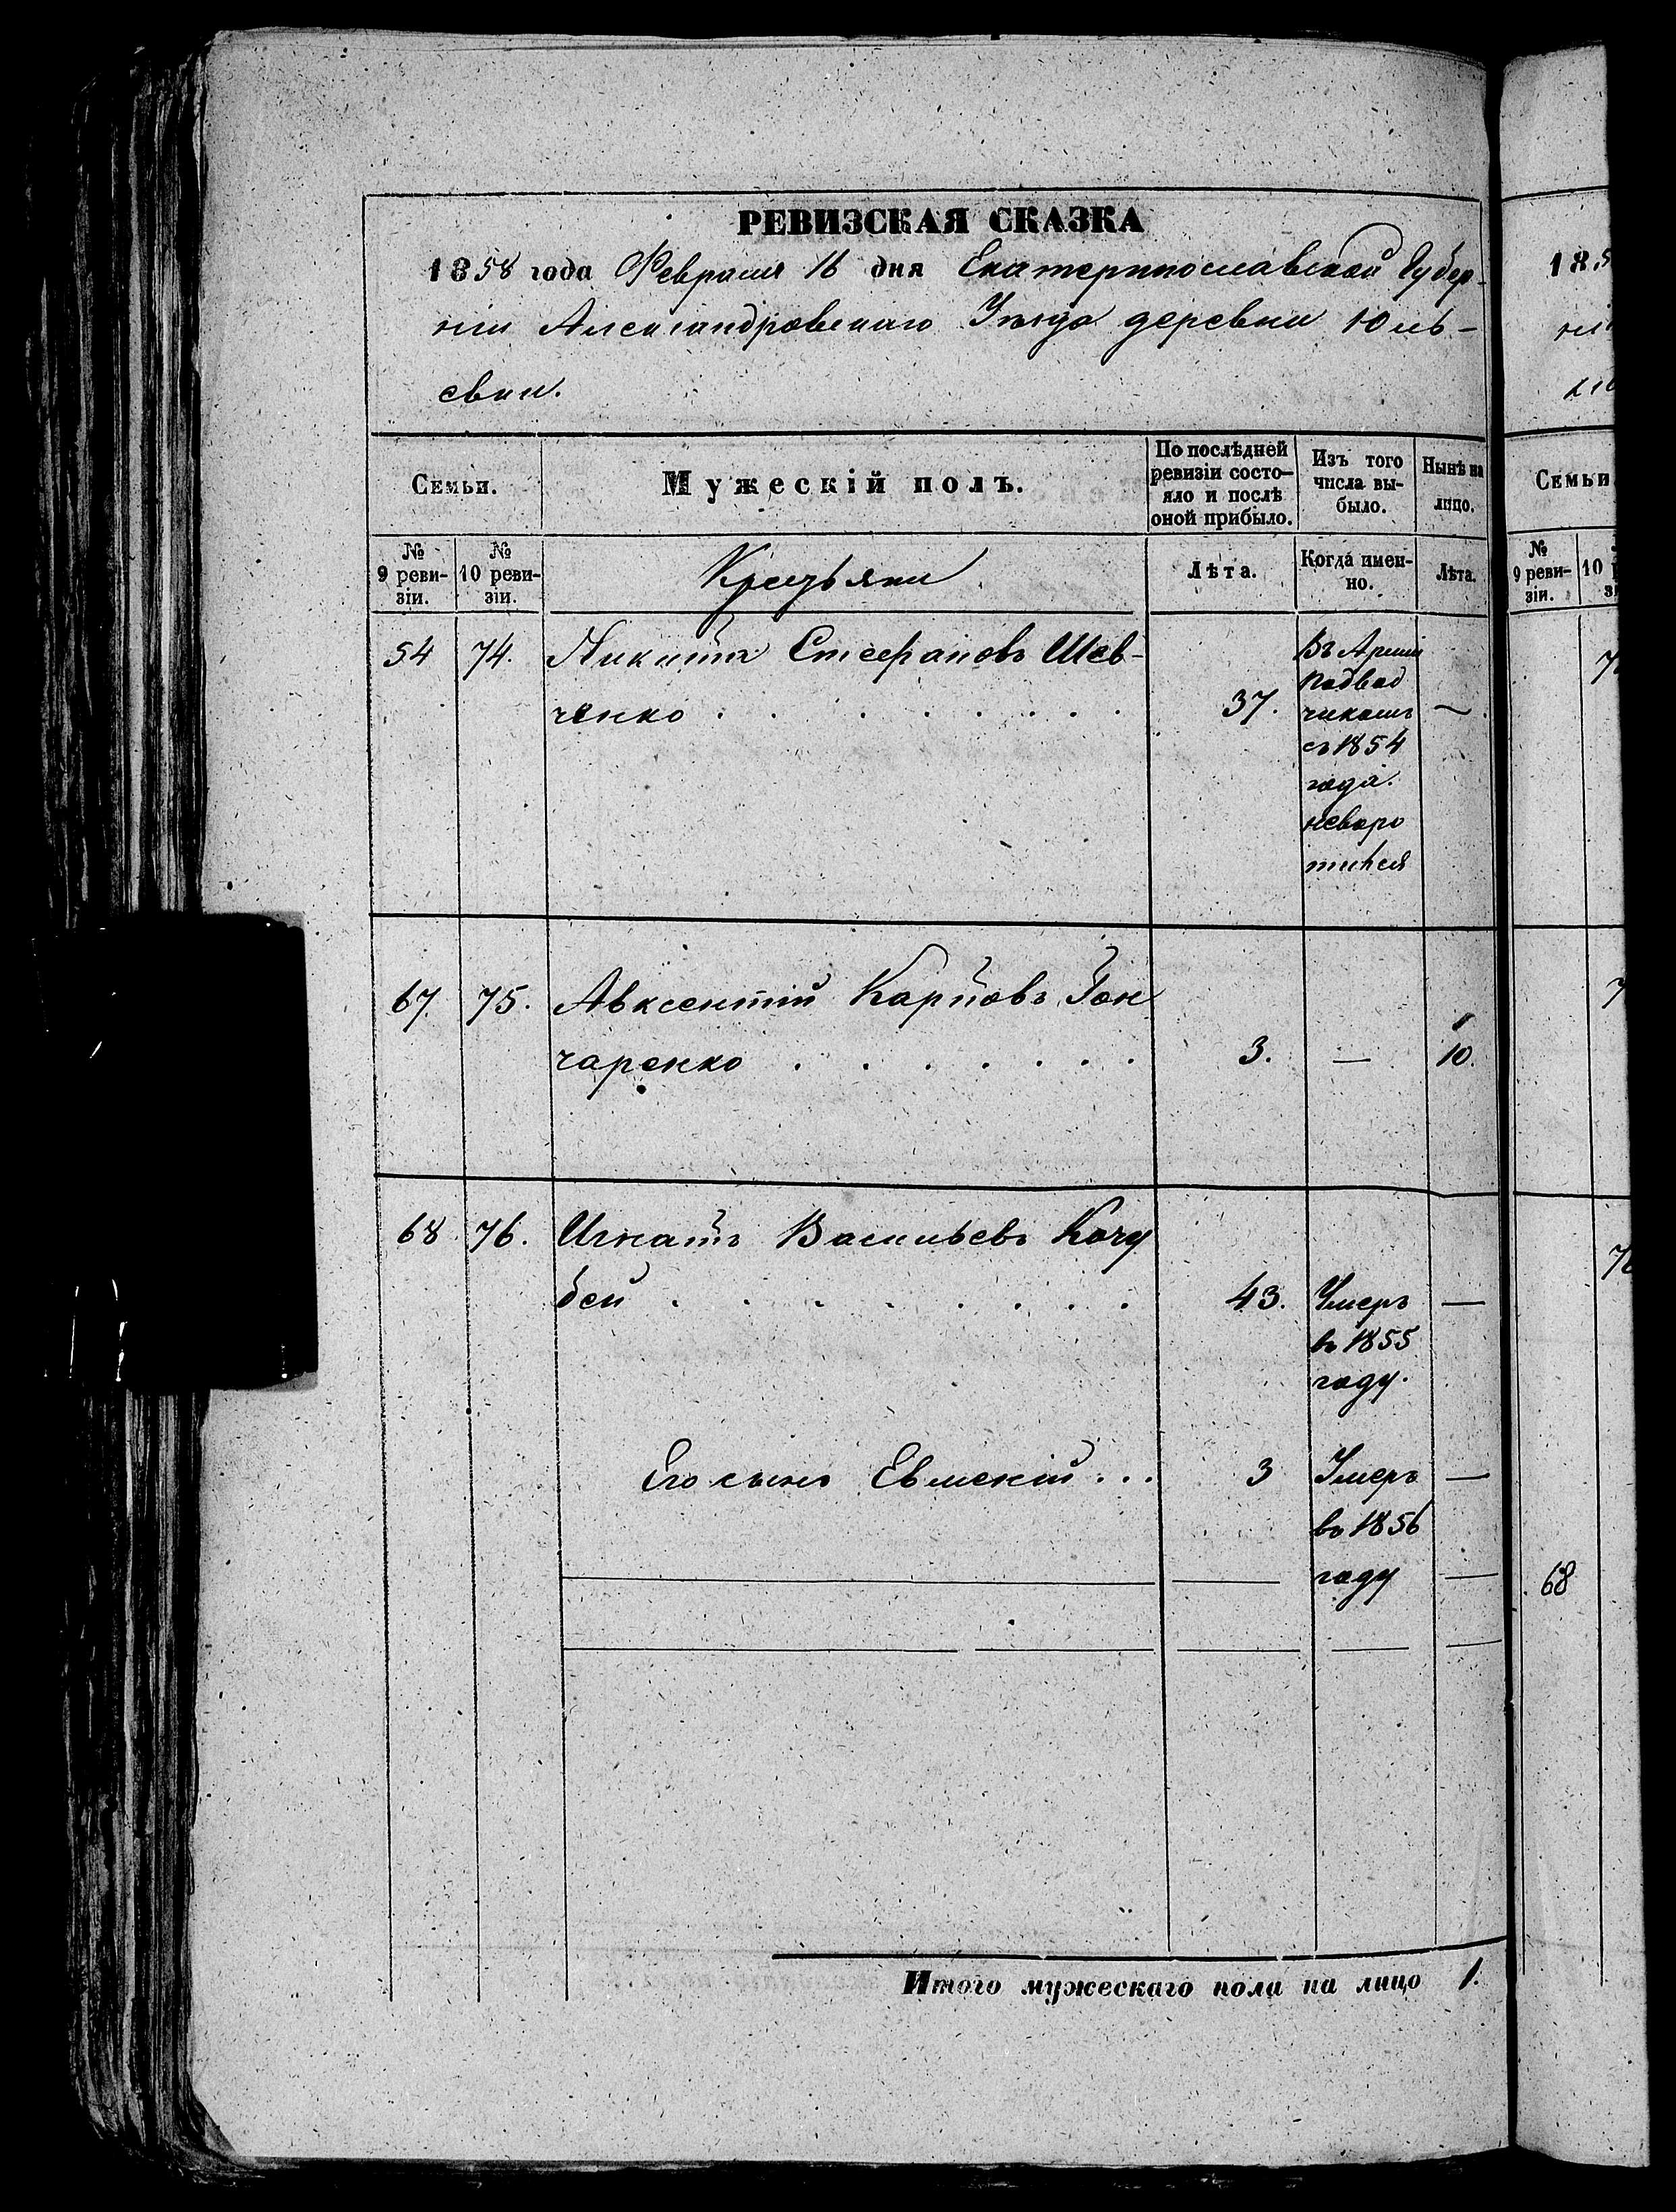 РЕВИЗСКАЯ СКАЗКА
1858 года Февраля 16 дня Екатеринославской Губер-
ніи Александровскаго Уѣзда деревни Юль-
евки.
Семьи.
Мужескій полъ.
По послѣдней
ревизіи состо-
яло и послѣ
оной прибыло.
Изъ того
числа вы-
было.
Нынѣ на
лицо.
№
9 реви-
зіи.
№
10 реви-
зіи.
Крестьяни
Лѣта.
Когда имен-
но.
Лѣта.
54 74. Никита Стефановъ Шев-
ченко . . . . . . . . 37. —
Въ Арміи
Подвод
чикомъ
съ 1854
года.
неворо
тился
67. 75. Авксентій Карповъ Гон
чаренко . . . . . . 3. — 1
10.
68. 76. Игнатъ Васильевъ Кочу
бей . . . . . . . . 43. Умеръ —
въ 1855
году.
Его сынъ Евмений . . . 3 Умеръ —
въ 1856
году
Итого мужескаго пола на лицо 1.
18
Семьи
№
9 реви-
зіи.
10
68